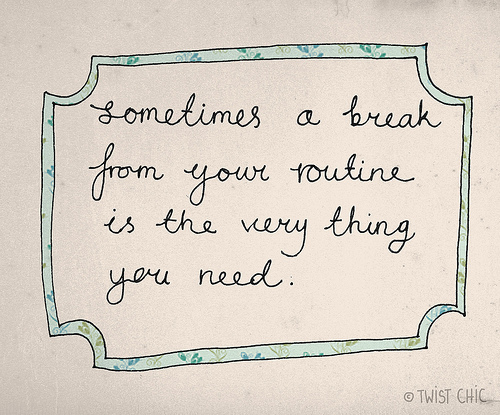 sometimes a break
from your routine
is the very thing
you need.
© TWIST CHIC